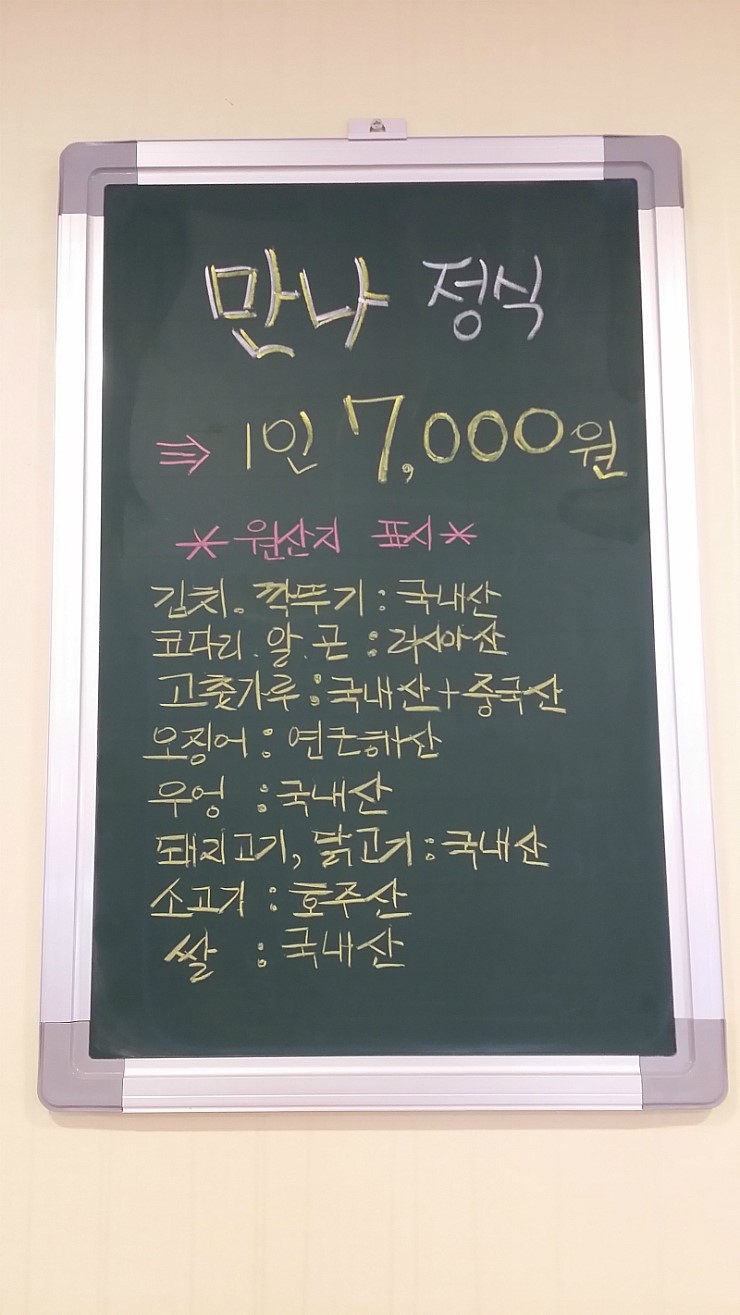 만나 정식
⇛ 1인 7,000원
* 원산지 표시 *
김치. 깍뚜기 : 국내산
코다리. 알. 곤 : 러시아산
고춧가루 : 국내산 + 중국산
오징어 : 연근해산
우엉 : 국내산
돼지고기, 닭고기 : 국내산
소고기 : 호주산
쌀 : 국내산